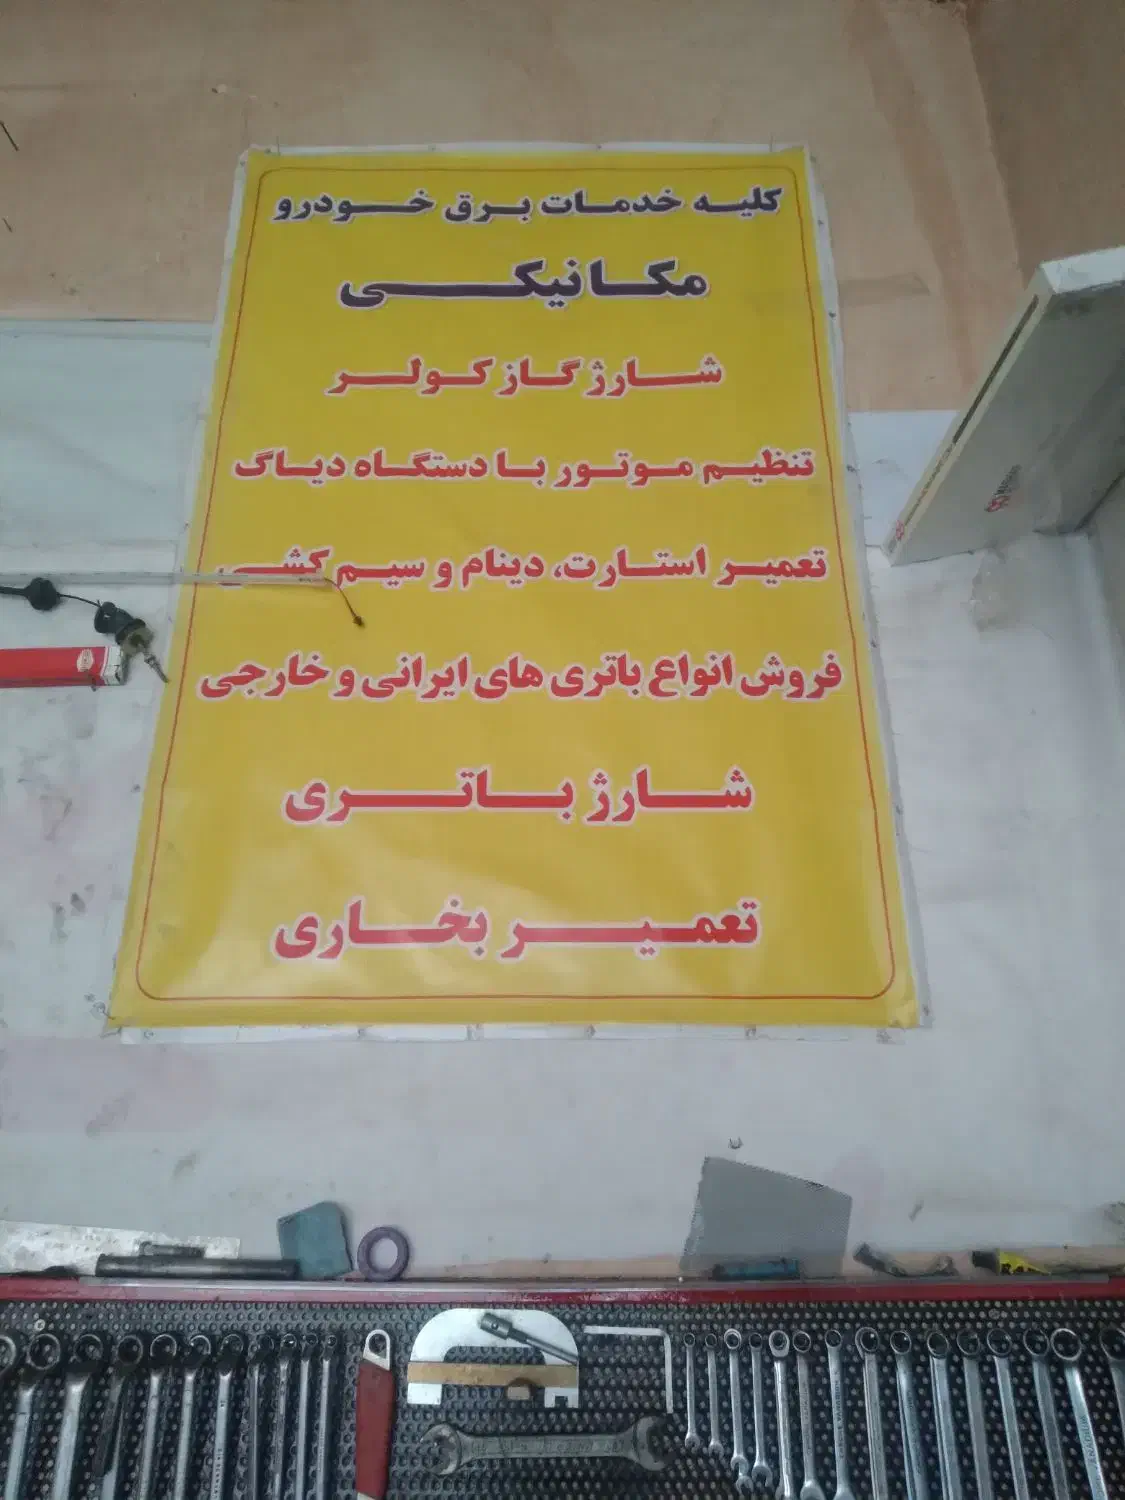 کلیه خدمات برق خودرو
مکانیکی
شارژ گاز کولر
تنظیم موتور با دستگاه دیاگ
تعمیر استارت، دینام و سیم کشی
فروش انواع باتری های ایرانی و خارجی
شارژ باتری
تعمیر بخاری